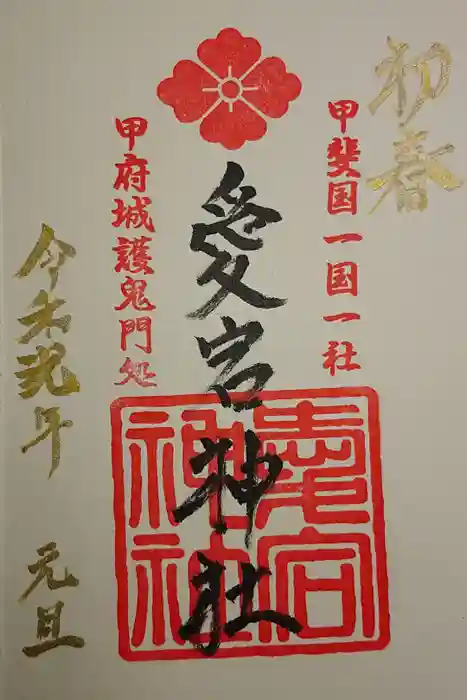 初春
甲斐国一国一社
愛宕神社
愛宕神社
甲府城護鬼門処
令和年 元旦